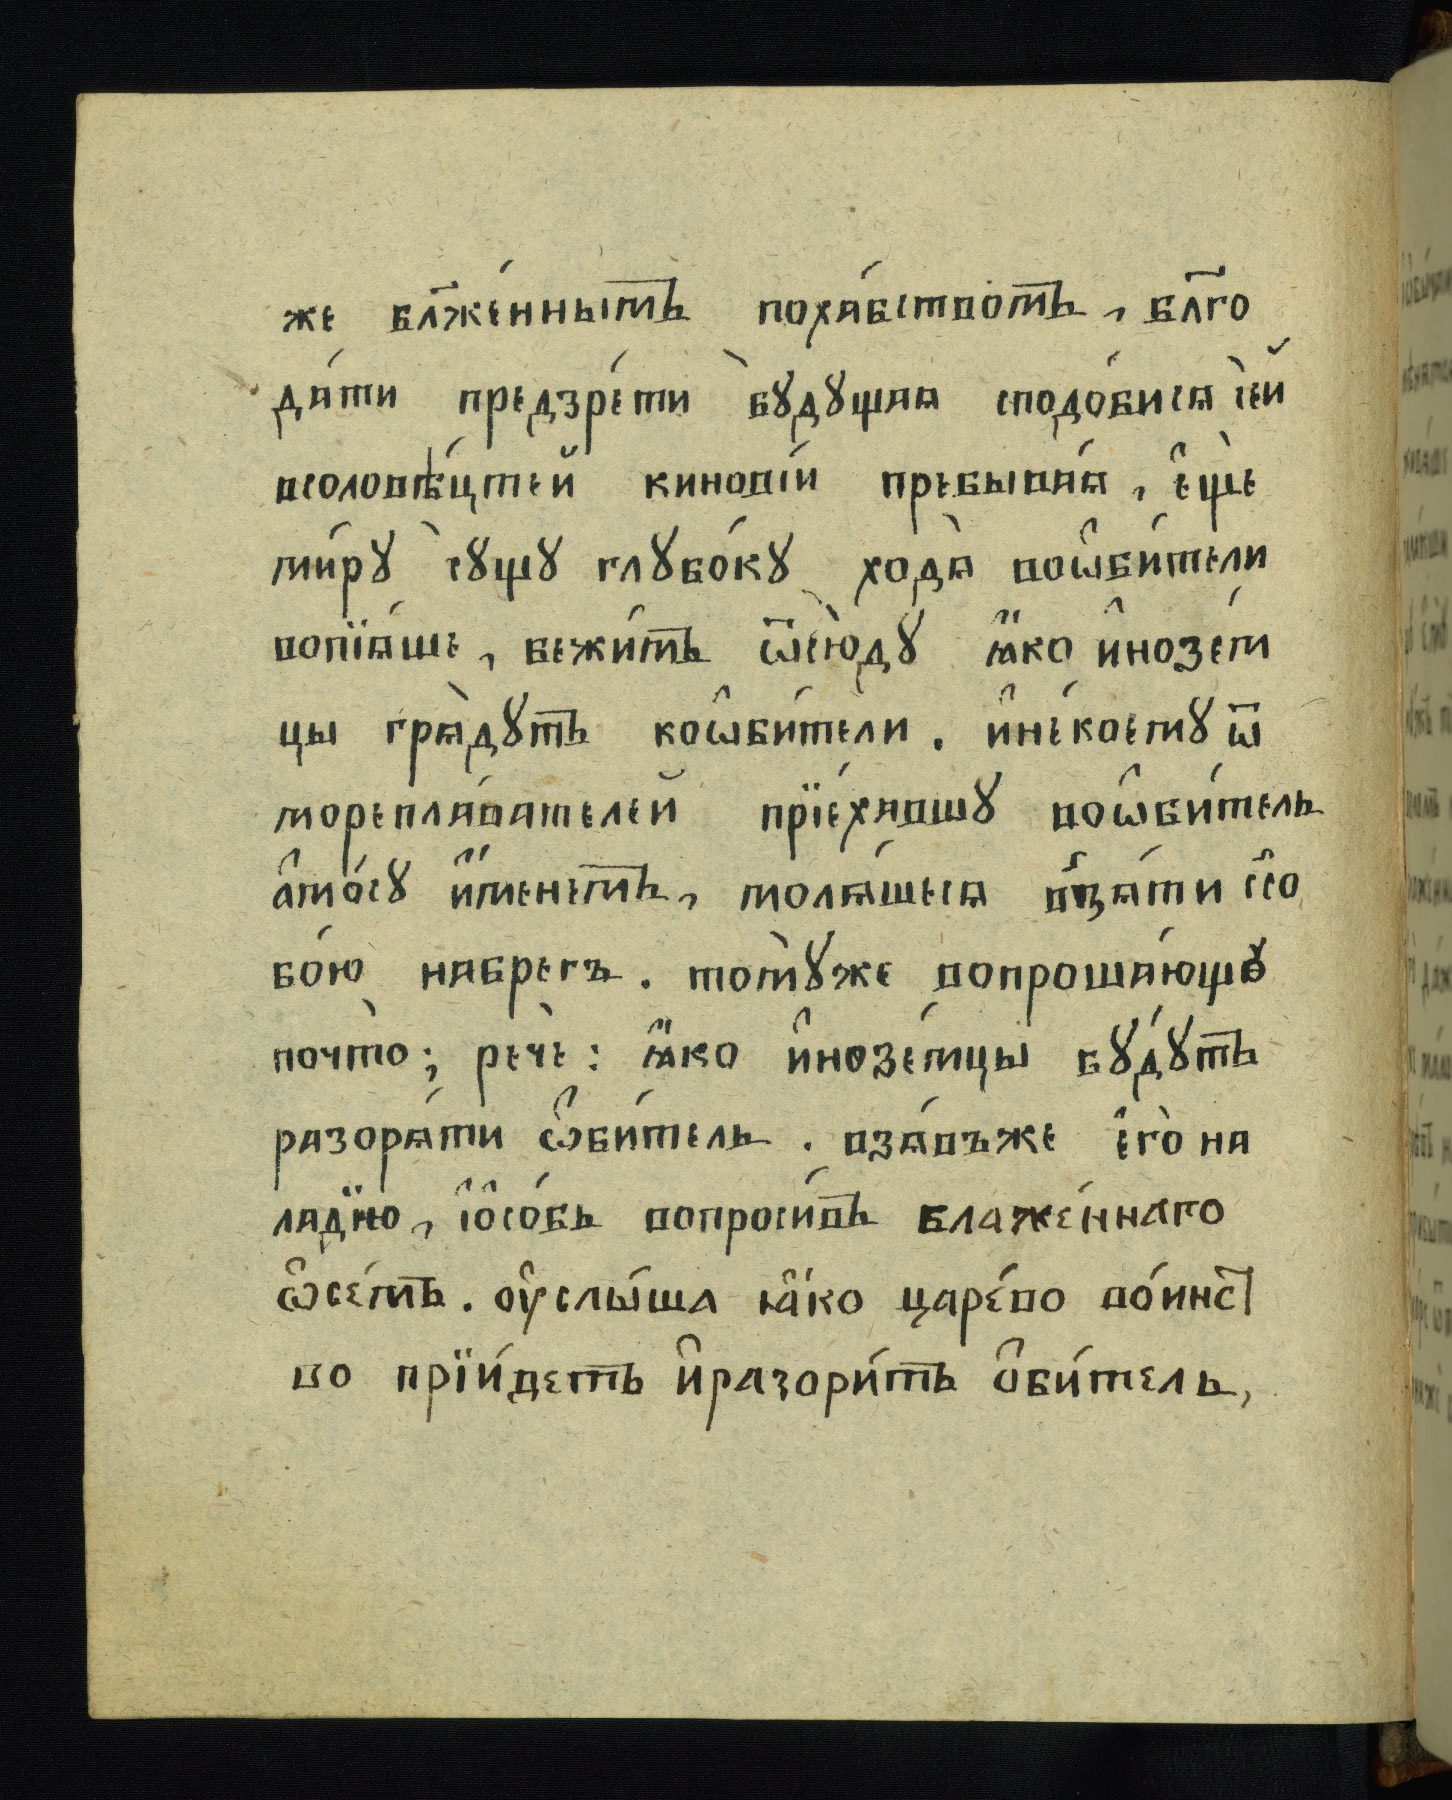 же бл҃же́ннымъ поха́бствомъ, бл҃го
да́ти предзрѣ́ти бꙋ̀дꙋщаѧ сподо́бисѧ се́й
всоловѣ́цтей кинові́и пребыва́ѧ, є҆щѐ
ми́рꙋ сꙋ̀щꙋ глꙋбо́кꙋ ходѧ̀ воѡ҆би́тели
вопїѧ́ше, бежи́мъ ѿсю́дꙋ ꙗ҆́ко и҆нозе́м
цы грѧдꙋ̀тъ коѡ҆би́тели. и҆не́коемꙋ ѿ
морепла́вателей прїе́хавшꙋ воѡ҆би́тель
а҆мо́сꙋ и҆́менемъ, молѧ́шесѧ взѧ́ти ссо
бо́ю набрегъ. томꙋ̀же вопроша́ющꙋ
почто̀; речѐ: ꙗ҆́ко и҆нозе́мцы бꙋ́дꙋтъ
разорѧ́ти ѡ҆би́тель. взѧ́въже є҆го̀ на
ладїю, і҆ѻсо́бь вопроси́въ блаже́ннаго
ѡ҆се́мъ. ᲂу҆слы́ша ꙗ҆́ко царе́во во́инс̑т
во прїи́детъ и҆разори́тъ ѻ҆би́тель,